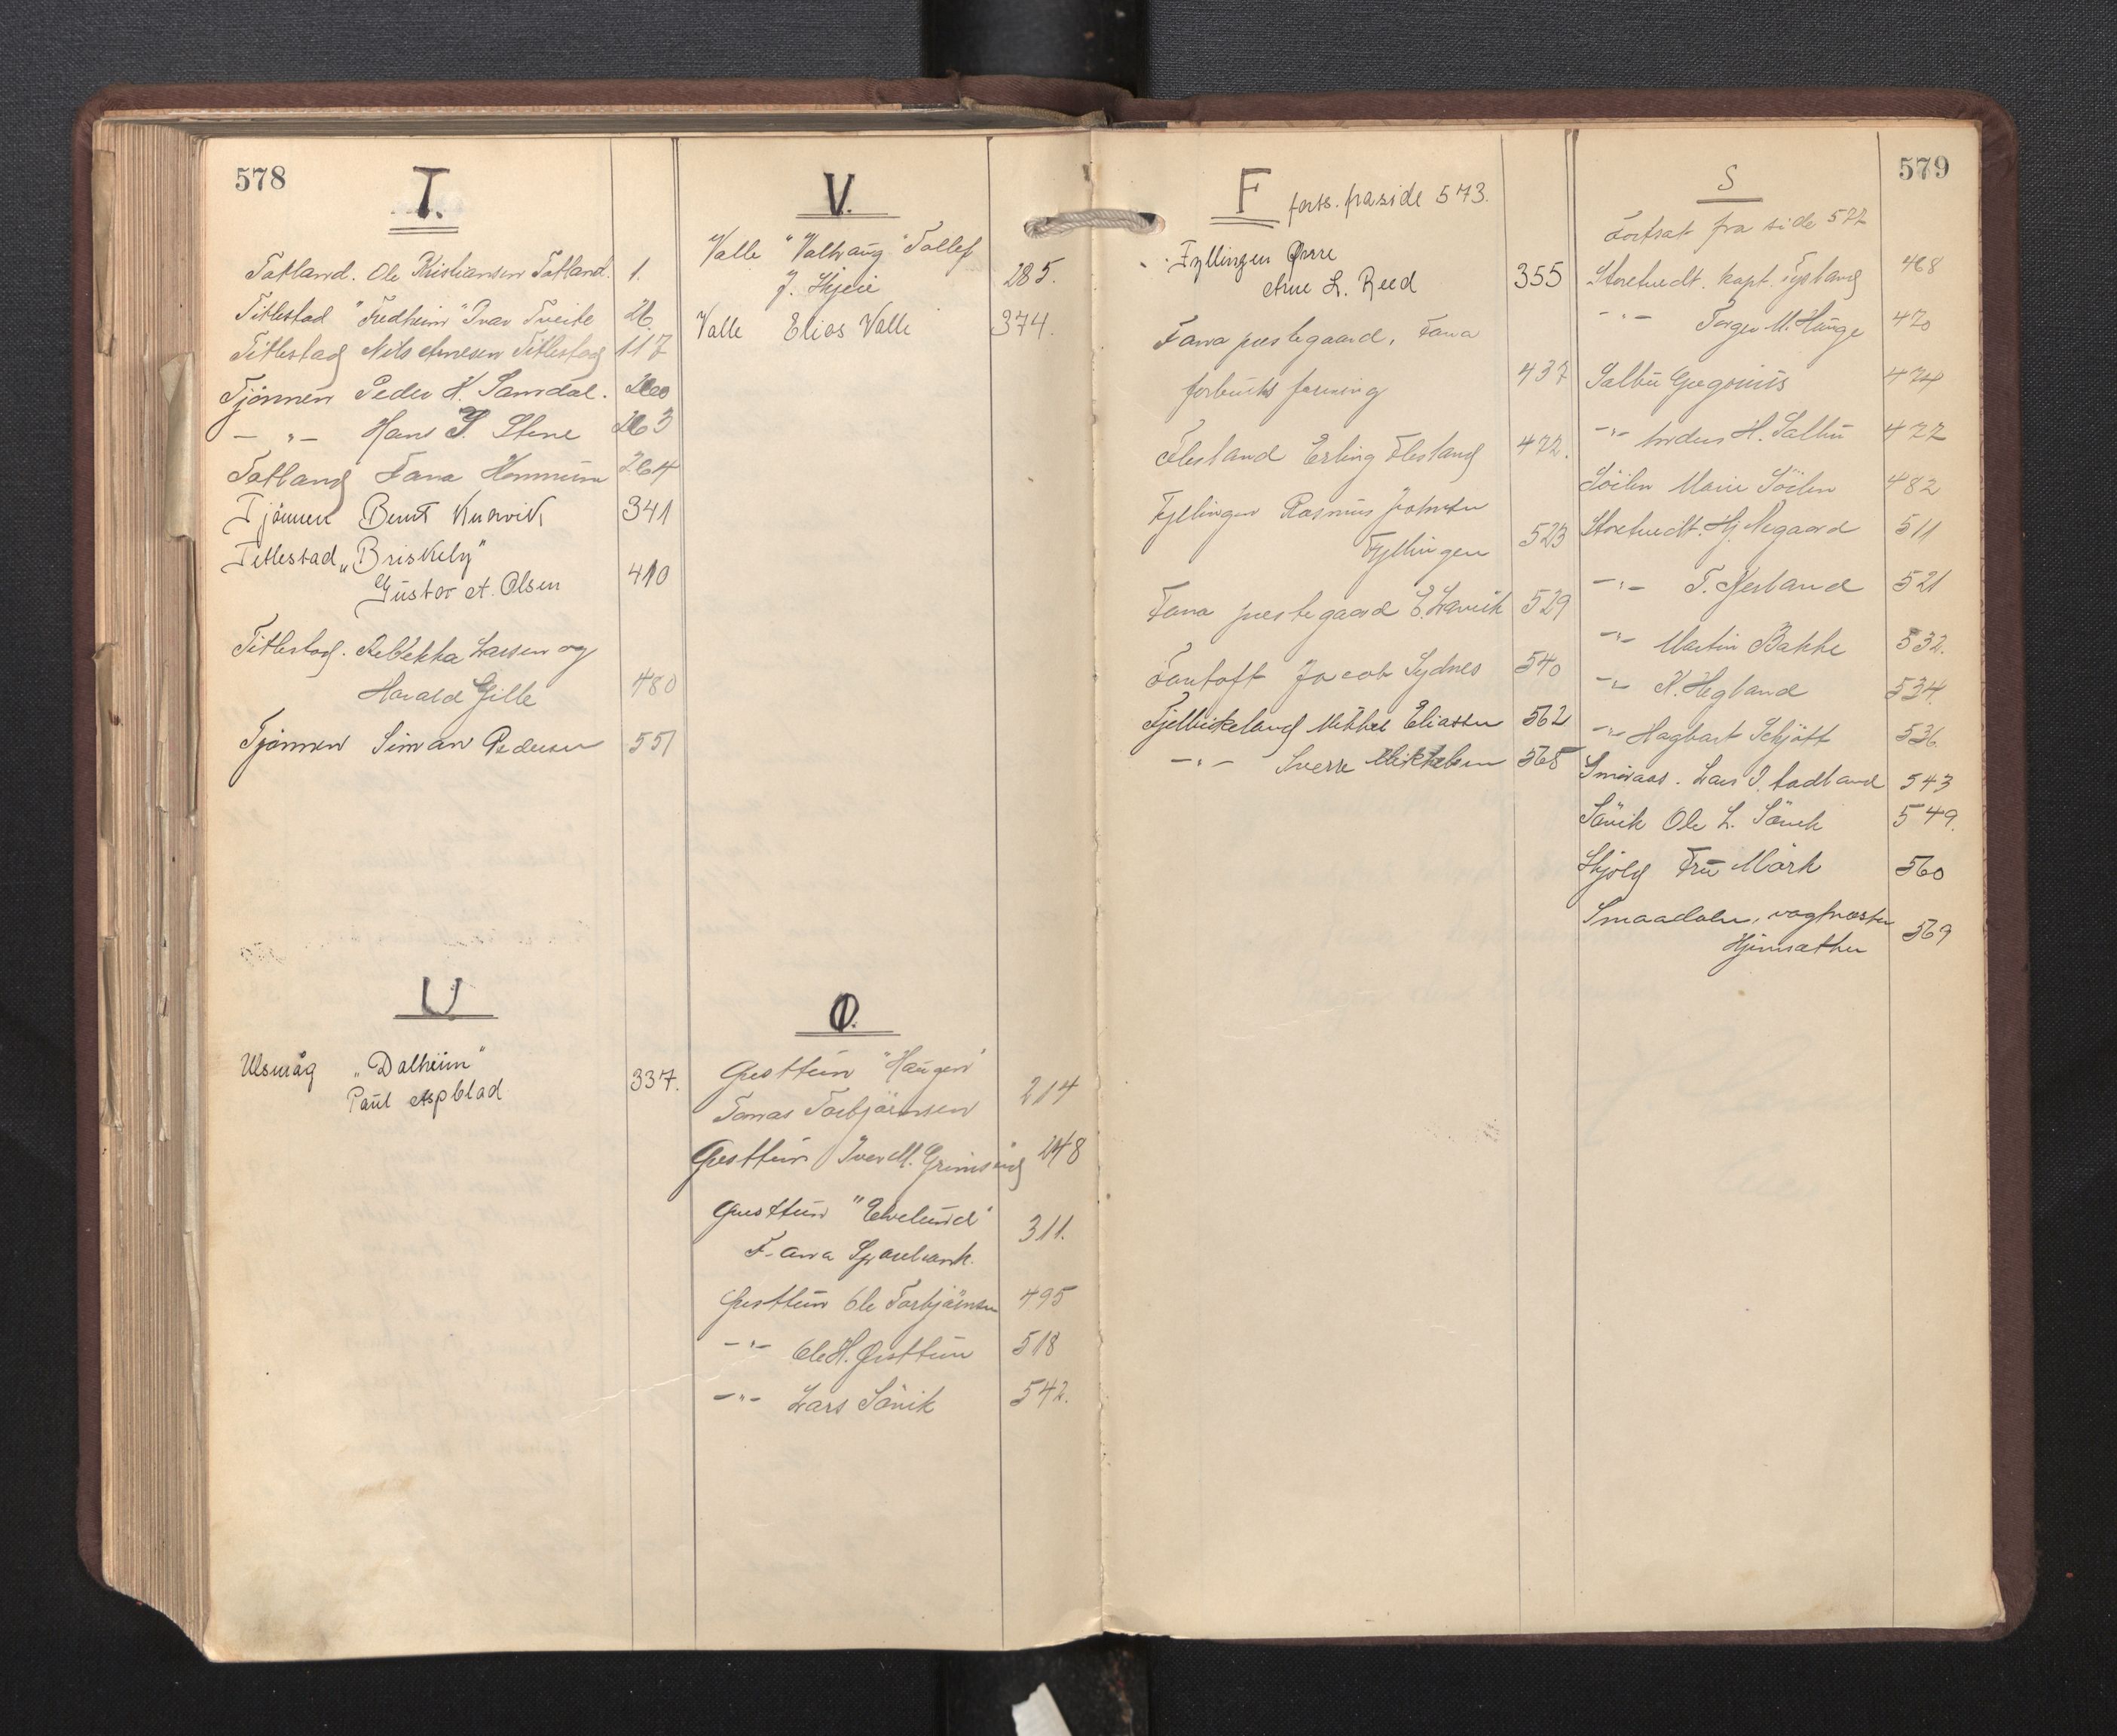 578
T.
Totland. Ole Kristiansen Totland. 1.
Titlestad "Fredheim" Ivar Tveite 26
Titlestad Nils Arnesen Titlestad 117
Tjönnen Peder K. Samdal. 260
— „ — Hans S. Stene 263
Totland Fana Kommune 264
Tjönnen Bernt Knarvik 341
Titlestad „Briskely"
Gustav A. Olsen 410
Titlestad. Rebekka Larsen og
Harald Gille 480
Tjönnen Simon Pedersen 551
U
Ulsmåg „Dalheim"
Paul Aspblad 337.
V.
Valle "Valhaug" Tollef
J. Skjeie 285.
Valle Elias Valle 374.
Ø.
Øvsttun "Haugen"
Tomas Torbjörnsen 214
Øvsttun Iver M. Grimseid 248
Øvsttun "Elvelund"
Fana Sparebank. 311.
Øvsttun Ole Torbjörnsen 495
— „ — Ole H. Øvsttun 518
— „ — Lars Sörvik 542.
579
F forts. fra side 573.
Fyllingen Øvre
Arne L. Reed 355
Fana prestegaard, Fana
forbruks forening 437
Flesland Erling Flesland 472.
Fyllingen Rasmus Johnsen
Fyllingen 523
Fana prestegaard E. Larvik 529
Fantoft Jacob Sydnes 540
Fjellbirkeland Mikkel Eliassen 562
— „ — Sverre Mikkelsen 565
S
Fortsat fra side 577
Storetvedt. kapt. Fysland 468
— „ — Torger M. Hauge 470
Salbu Gregorius 474
— „ — Anders H. Salbu 477
Söilen Marie Söilen 482
Storetvedt. Hj. Negaard 511
— „ — T. Nesland 521
— „ — Martin Bakke 532.
— „ — K. Hegland 534.
— „ — Hagbart Schjött 536
Smöraas. Lars I. Aadland 543
Sörvik Ole L. Sörvik 549.
Skjold Fru Mörk 560
Smaadalen, vagtmester
Hjemsæther 569